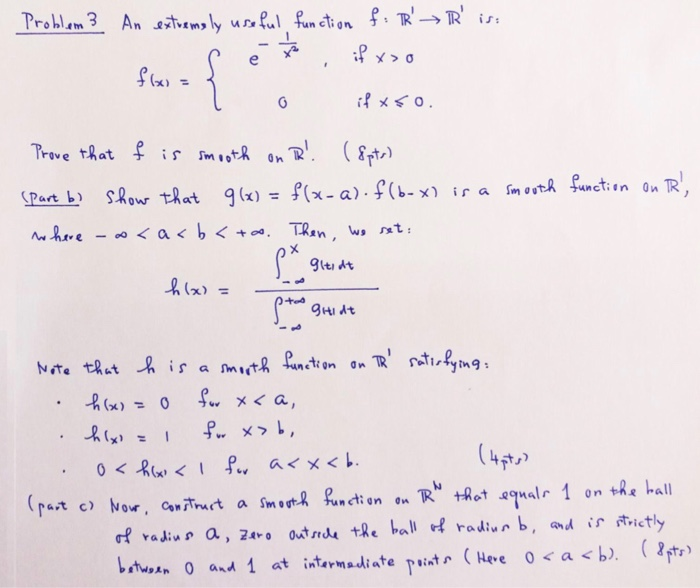 Problem 3 An extremely useful function f: ℝ¹ → ℝ¹ is:
f(x) = { e^{-1/x²}, if x > 0
0 if x ≤ 0.
Prove that f is smooth on ℝ¹. (8pts)
(Part b) Show that g(x) = f(x-a)·f(b-x) is a smooth function on ℝ¹,
where -∞ < a < b < +∞. Then, we set:
h(x) = ∫_{-∞}^{x} g(t) dt / ∫_{-∞}^{+∞} g(t) dt
Note that h is a smooth function on ℝ¹ satisfying:
· h(x) = 0 for x < a,
· h(x) = 1 for x > b,
· 0 < h(x) < 1 for a < x < b. (4pts)
(part c) Now, construct a smooth function on ℝᴺ that equals 1 on the ball
of radius a, zero outside the ball of radius b, and is strictly
between 0 and 1 at intermediate points (Here 0 < a < b). (8pts)